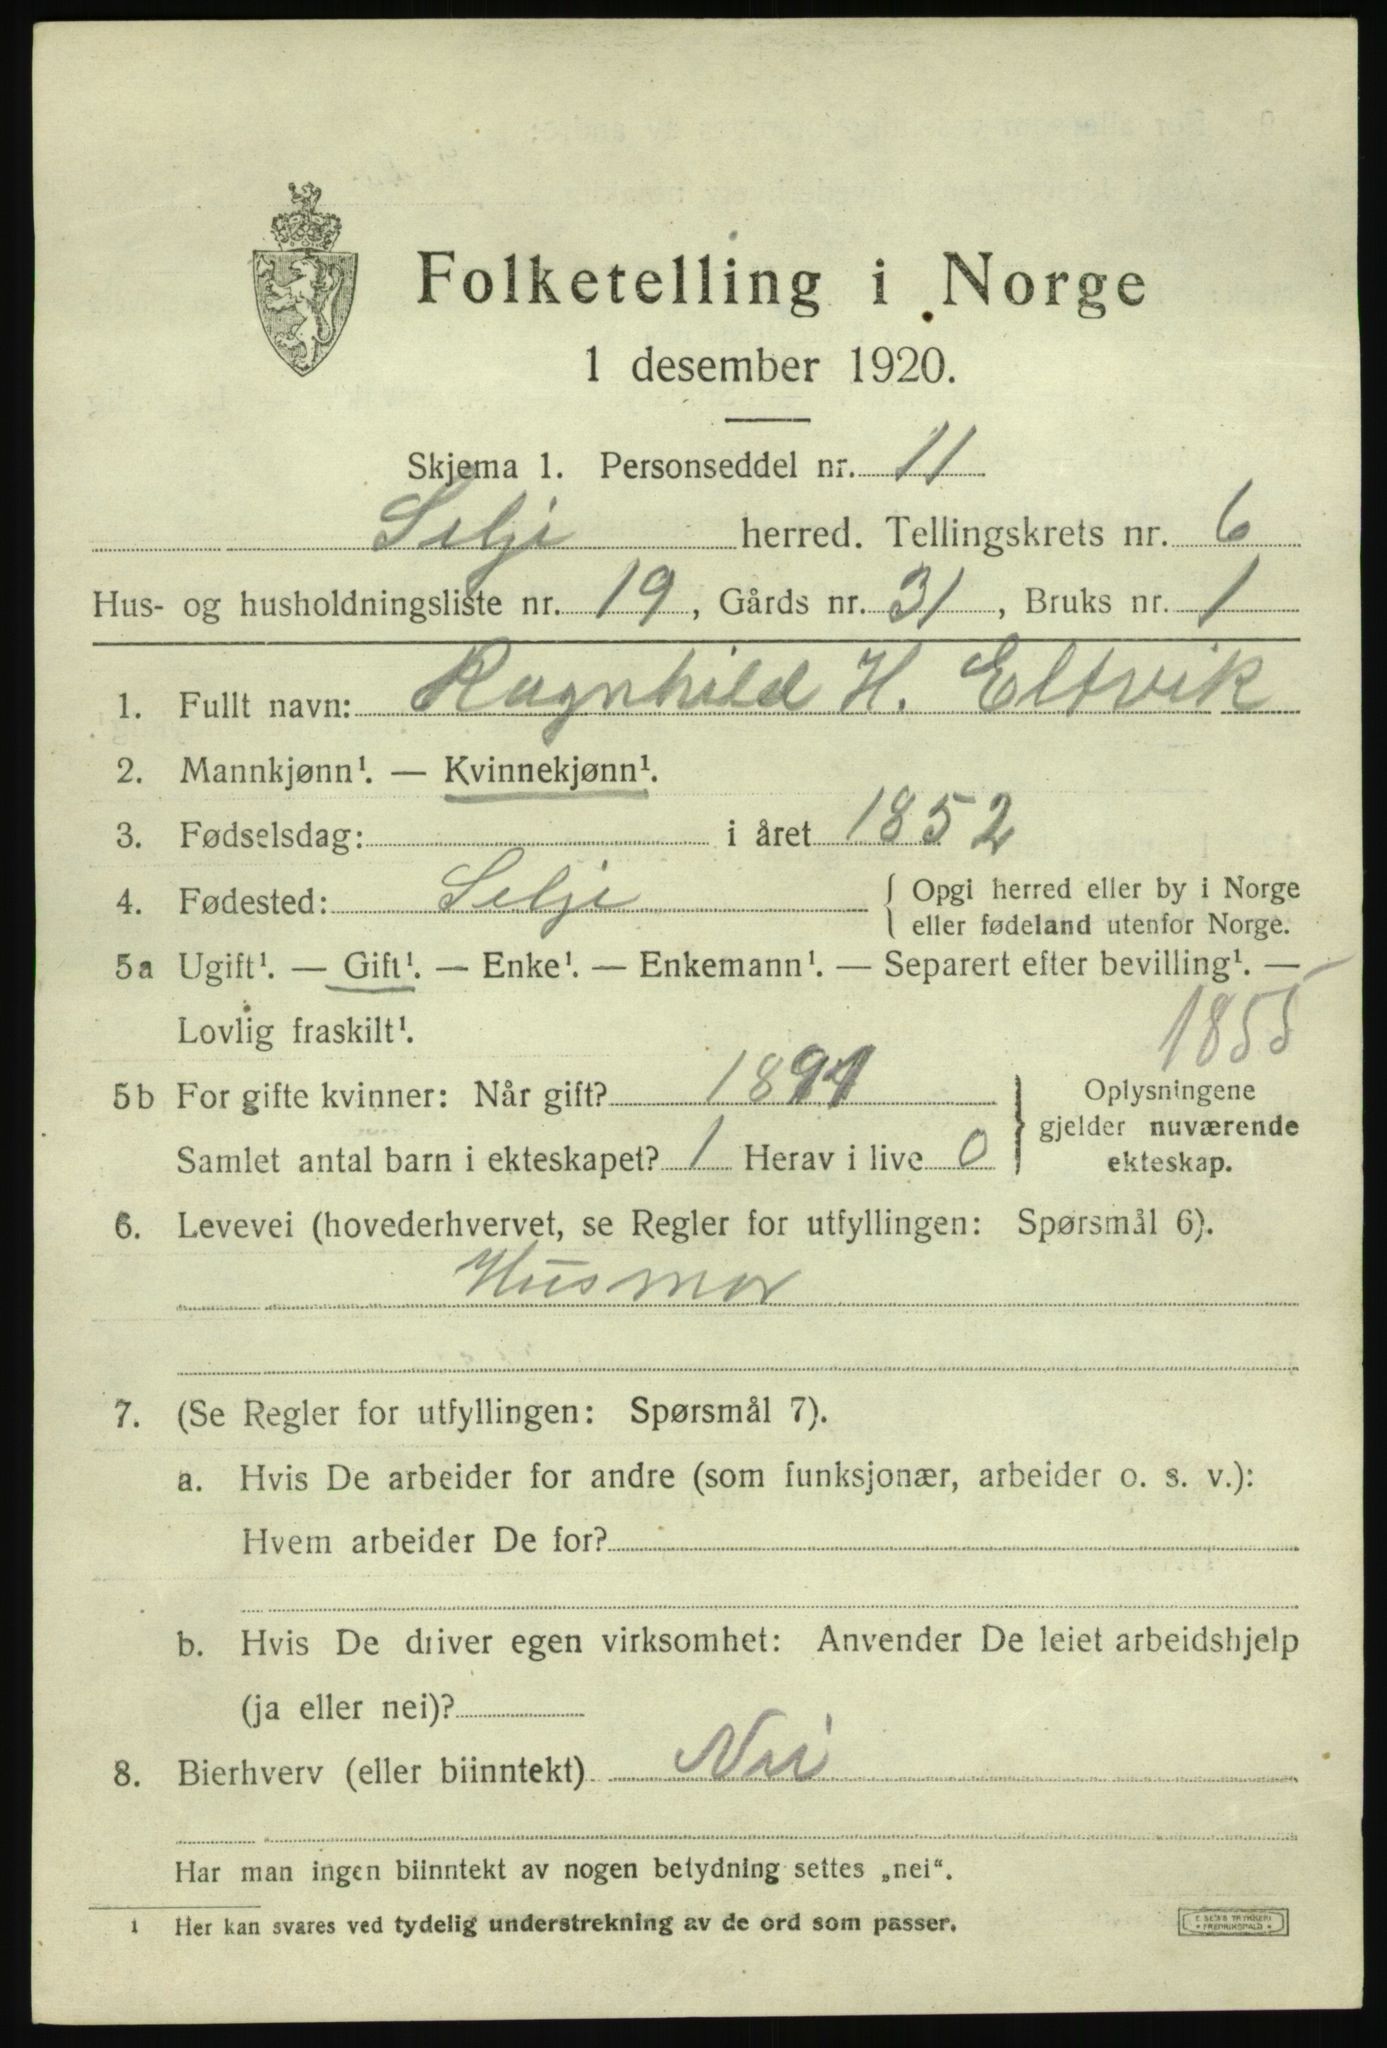 Folketelling i Norge
1 desember 1920.
Skjema 1. Personseddel nr. 11
Selje herred. Tellingskrets nr. 6
Hus- og husholdningsliste nr. 19, Gårds nr. 31, Bruks nr. 1
1. Fullt navn: Ragnhild H. Eltvik
2. Mannkjønn¹. — Kvinnekjønn¹.
3. Fødselsdag: i året 1852
4. Fødested: Selje { Opgi herred eller by i Norge
eller fødeland utenfor Norge.
5a Ugift¹. — Gift¹. — Enke¹. — Enkemann¹. — Separert efter bevilling¹. —
Lovlig fraskilt¹. 1855
5b For gifte kvinner: Når gift? Oplysningene
gjelder nuværende
Samlet antal barn i ekteskapet? 1 Herav i live 0 ekteskap.
6. Levevei (hovederhvervet, se Regler for utfyllingen: Spørsmål 6).
Husmor
7. (Se Regler for utfyllingen: Spørsmål 7).
a. Hvis De arbeider for andre (som funksjonær, arbeider o. s. v.):
Hvem arbeider De for?
b. Hvis De driver egen virksomhet: Anvender De leiet arbeidshjelp
(ja eller nei)?
8. Bierhverv (eller biinntekt) Nei
Har man ingen biinntekt av nogen betydning settes „nei“.
1 Her kan svares ved tydelig understrekning av de ord som passer.